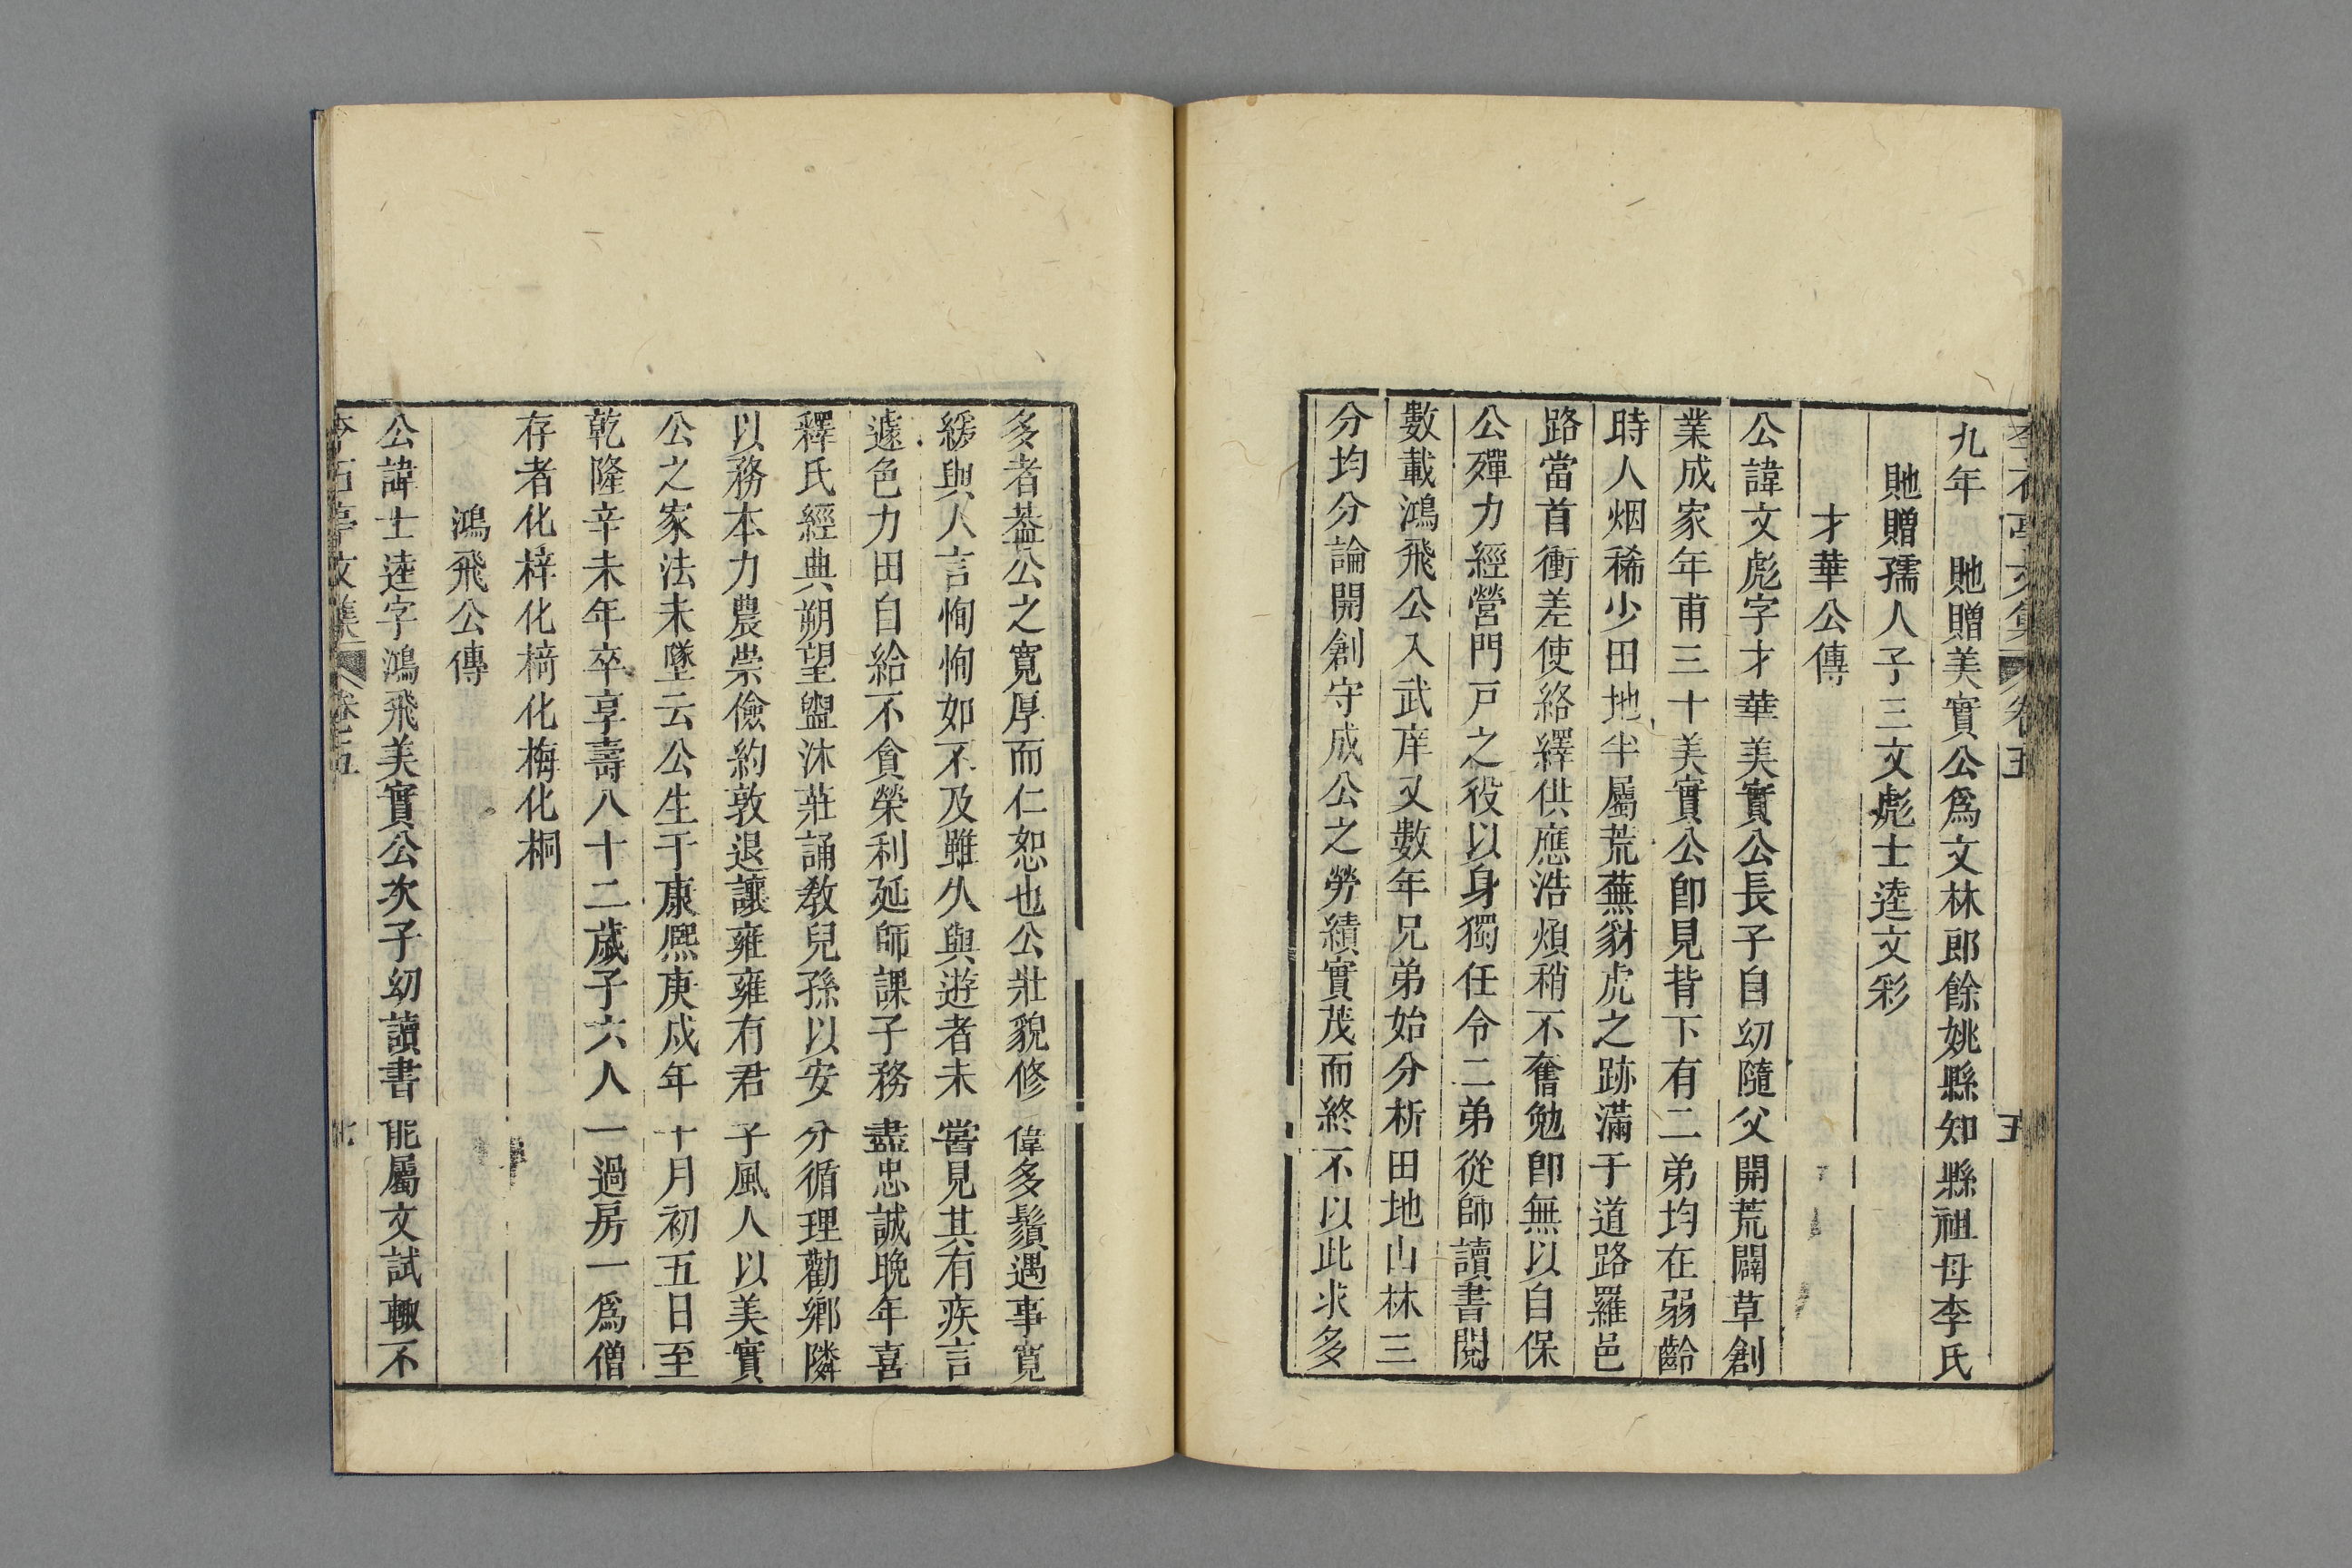 李石亭文集 卷五 五
九年 貤贈美實公爲文林郎餘姚縣知縣祖母李氏
貤贈孺人子三文彪士逵文彩
才華公傳
公諱文彪字才華美實公長子自幼隨父開荒闢草創
業成家年甫三十美實公卽見背下有二弟均在弱齡
時人烟稀少田地半屬荒蕪豺虎之跡滿于道路羅邑
路當首衝差使絡繹供應浩煩稍不奮勉卽無以自保
公殫力經營門戸之役以身獨任令二弟從師讀書閱
數載鴻飛公入武庠又數年兄弟始分析田地山林三
分均分論開創守成公之勞績實茂而終不以此求多
多者葢公之寬厚而仁恕也公壯貌修偉多鬚遇事寬
緩與人言恂恂如不及雖久與遊者未嘗見其有疾言
遽色力田自給不貪榮利延師課子務盡忠誠晚年喜
釋氏經典朔望盥沐莊誦敎兒孫以安分循理勸鄉隣
以務本力農崇儉約敦退讓雍雍有君子風人以美實
公之家法未墜云公生于康熙庚戍年十月初五日至
乾隆辛未年卒享壽八十二歲子六人一過房一爲僧
存者化梓化椅化梅化桐
鴻飛公傳
公諱士逵字鴻飛美實公次子幼讀書能屬文試輙不
李石亭文集 卷五